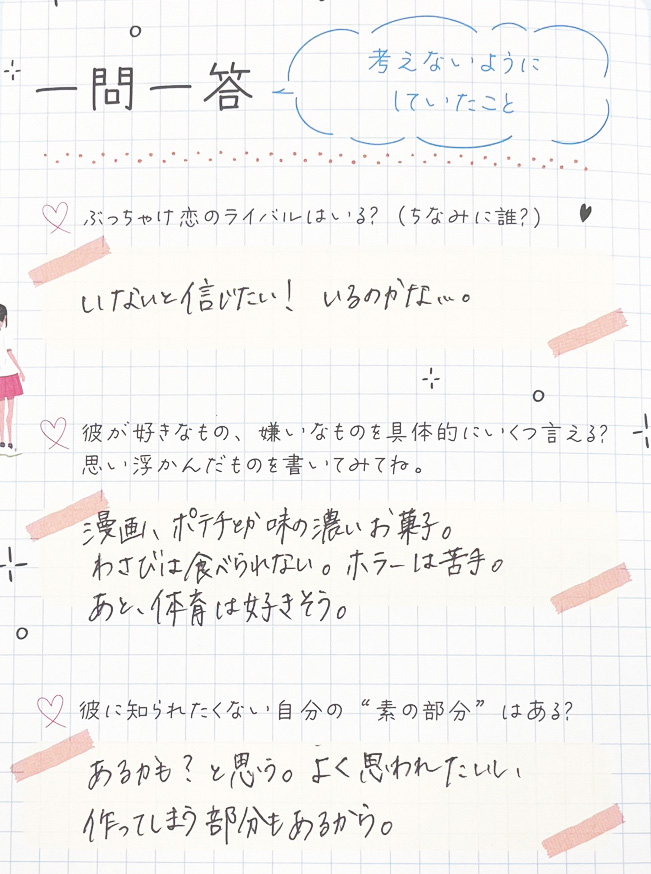 一問一答
考えないように
していたこと
ぶっちゃけ恋のライバルはいる?(ちなみに誰?)
いないと信じたい! いるのかな…。
彼が好きなもの、嫌いなものを具体的にいくつ言える?
思い浮かんだものを書いてみてね。
漫画、ポテチとか味の濃いお菓子。
わさびは食べられない。ホラーは苦手。
あと、体育は好きそう。
彼に知られたくない自分の“素の部分”はある?
あるかも?と思う。よく思われたいし、
作ってしまう部分もあるから。